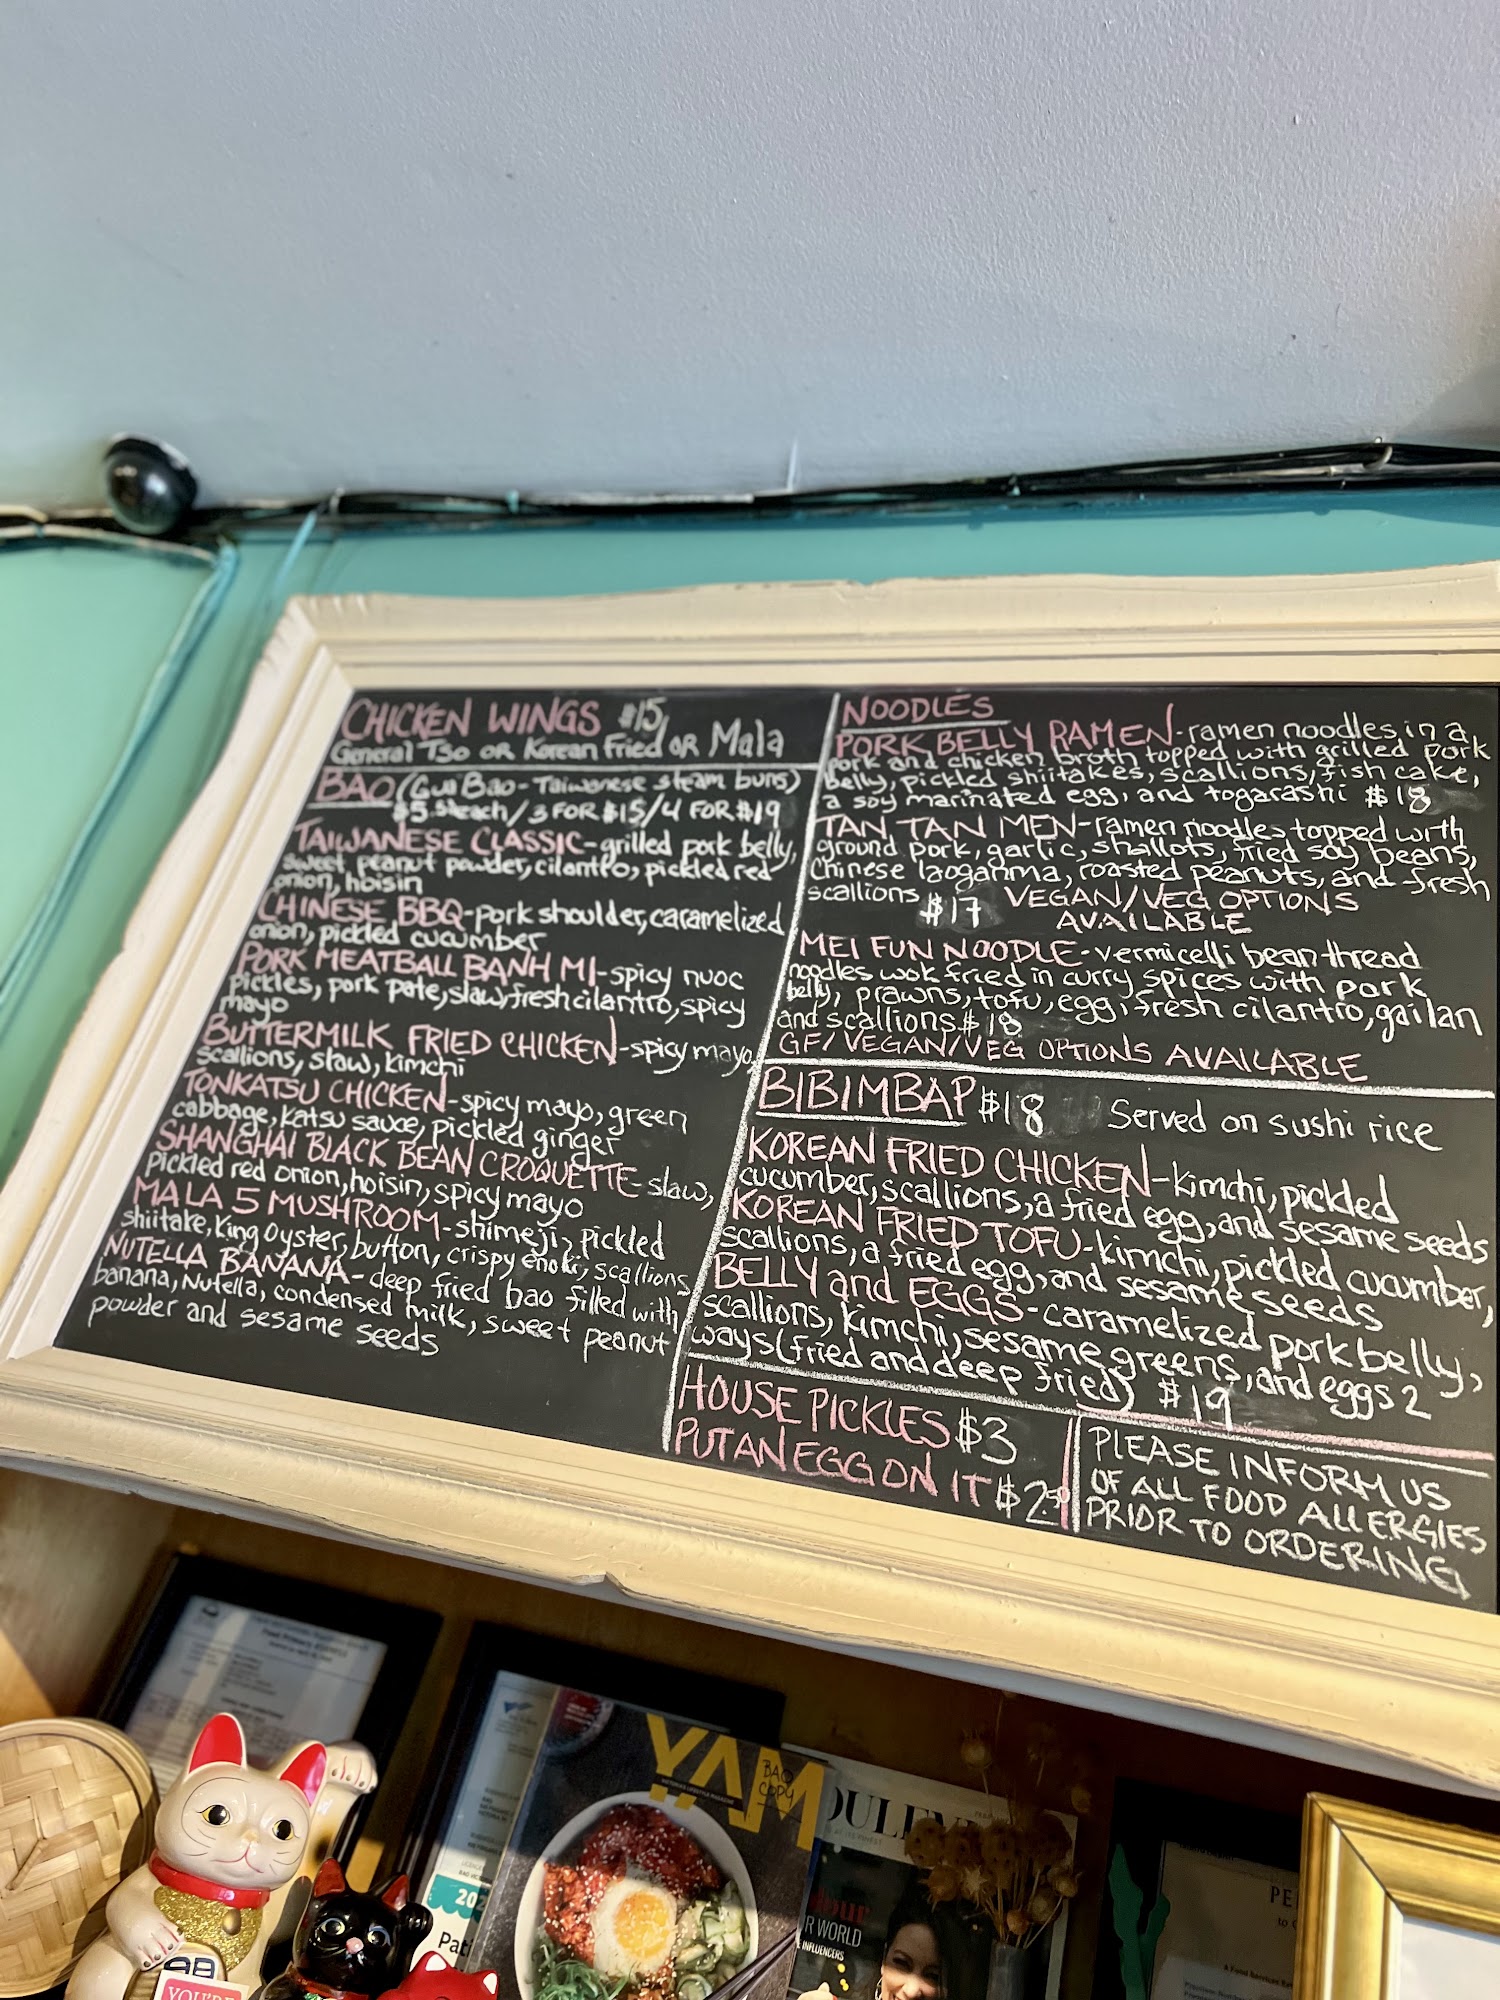 CHICKEN WINGS $15
General Tso OR Korean Fried OR Mala
BAO (Gua Bao - Taiwanese steam buns)
/ 3 FOR $15 / 4 FOR $19
TAIWANESE CLASSIC - grilled pork belly,
sweet peanut powder, cilantro, pickled red
onion, hoisin
CHINESE BBQ - pork shoulder, caramelized
onion, pickled cucumber
PORK MEATBALL BANH MI - spicy nuoc
pickles, pork pate, slaw, fresh cilantro, spicy
mayo
BUTTERMILK FRIED CHICKEN - spicy mayo,
scallions, slaw, kimchi
TONKATSU CHICKEN - spicy mayo, green
cabbage, katsu sauce, pickled ginger
SHANGHAI BLACK BEAN CROQUETTE - slaw,
pickled red onion, hoisin, spicy mayo
MA LA 5 MUSHROOM - shimeji, pickled
shiitake, King Oyster, button, crispy enoki, scallions
NUTELLA BANANA - deep fried bao filled with
banana, Nutella, condensed milk, sweet peanut
powder and sesame seeds
NOODLES
PORK BELLY RAMEN - ramen noodles in a
pork and chicken broth topped with grilled pork
belly, pickled shiitakes, scallions, fish cake,
a soy marinated egg, and togarashi $18
TAN TAN MEN - ramen noodles topped with
ground pork, garlic, shallots, fried soy beans,
Chinese laoganma, roasted peanuts, and fresh
scallions $17 VEGAN/VEG OPTIONS
AVAILABLE
MEI FUN NOODLE - vermicelli bean thread
noodles wok fried in curry spices with pork
belly, prawns, tofu, egg, fresh cilantro, gailan
and scallions $18
GF/VEGAN/VEG OPTIONS AVAILABLE
BIBIMBAP $18 Served on sushi rice
KOREAN FRIED CHICKEN - kimchi, pickled
cucumber, scallions, a fried egg, and sesame seeds
KOREAN FRIED TOFU - kimchi, pickled cucumber,
scallions, a fried egg, and sesame seeds
BELLY and EGGS - caramelized pork belly,
scallions, kimchi, sesame greens, and eggs 2
ways (fried and deep fried) $19
HOUSE PICKLES $3
PUT AN EGG ON IT $2.50
PLEASE INFORM US
OF ALL FOOD ALLERGIES
PRIOR TO ORDERING
YAM
BAO
COPY
R WORLD
INFLUENCERS
20
Pat
YOU'RE
PE